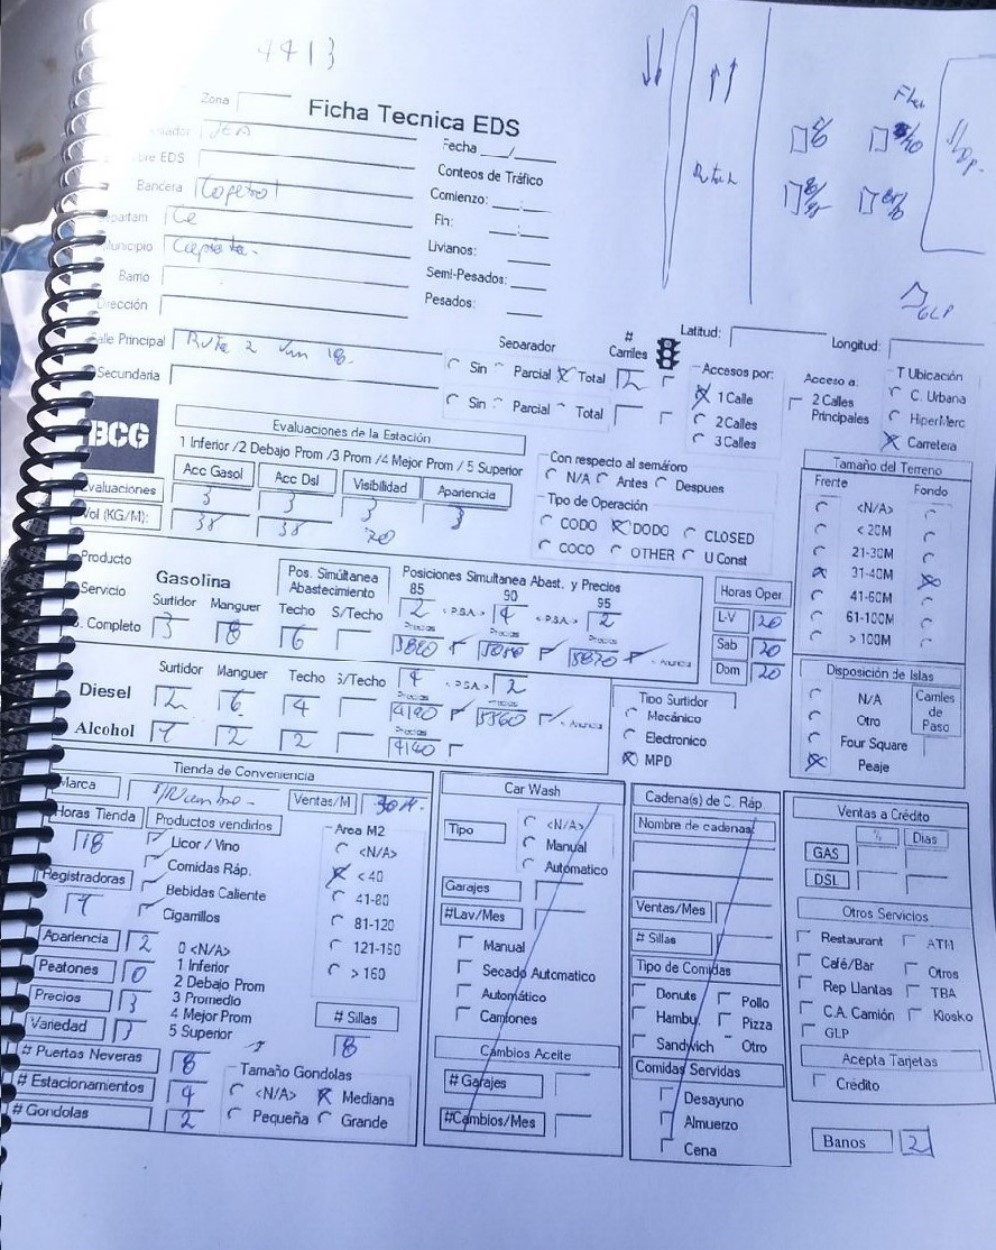 4413
Zona
Ficha Tecnica EDS
JEA
Fecha __/__
EDS
Conteos de Tráfico
Bandera Copetrol
Comienzo: __:__
Departam Ce
Fin: __:__
Municipio Capiata.
Livianos:
Barrio
Semi-Pesados:
Dirección
Pesados:
GLP
Calle Principal Ruta 2 Km 18.
Separador
# Carriles
Latitud:
Longitud:
Sin Parcial Total 2
Secundaria
Sin Parcial Total
Accesos por:
1 Calle
2 Calles
3 Calles
Acceso a:
2 Calles Principales
T Ubicación
C. Urbana
HiperMerc
Carretera
BCG
Evaluaciones de la Estación
1 Inferior /2 Debajo Prom /3 Prom /4 Mejor Prom / 5 Superior
Acc Gasol Acc Dsl Visibilidad Apariencia
Evaluaciones 3 3 3 3
Vol (KG/M): 38 38 20
Con respecto al semáforo
N/A Antes Despues
Tipo de Operación
CODO DODO CLOSED
COCO OTHER U Const
Tamaño del Terreno
Frente Fondo
<N/A>
< 20M
21-30M
31-40M
41-60M
61-100M
> 100M
Producto
Servicio
S. Completo
Gasolina
Surtidor Manguer
3 8
Pos. Simúltanea Abastecimiento
Techo S/Techo
6
Posiciones Simultanea Abast. y Precios
85 90 95
2 <P.S.A.> 4 <P.S.A.> 2
Precios Precios Precios
Horas Oper
L-V 20
Sab 20
Dom 20
Surtidor Manguer Techo S/Techo
Diesel 2 6 4 4 <P.S.A.> 2
Precios Precios
4190 5360
Alcohol 2 2
4140
Tipo Surtidor
Mecánico
Electronico
MPD
Disposición de Islas
N/A
Otro
Four Square
Peaje
Carriles de Paso
Tienda de Conveniencia
Marca S/Nombre - Ventas/M 30M.
Horas Tienda 18
Productos vendidos
Licor / Vino
Comidas Ráp.
Bebidas Caliente
Cigarrillos
Registradoras
Area M2
<N/A>
< 40
41-80
81-120
121-160
> 160
Apariencia 2
Peatones 0
Precios 3
Variedad 3
0 <N/A>
1 Inferior
2 Debajo Prom
3 Promedio
4 Mejor Prom
5 Superior
# Sillas
8
# Puertas Neveras 8
# Estacionamientos 4
# Gondolas 2
Tamaño Gondolas
<N/A> Mediana
Pequeña Grande
Car Wash
Tipo
<N/A>
Manual
Automatico
Garajes
#Lav/Mes
Manual
Secado Automatico
Automático
Camiones
Cambios Aceite
# Garajes
#Cambios/Mes
Cadena(s) de C. Ráp.
Nombre de cadenas
Ventas/Mes
# Sillas
Tipo de Comidas
Donuts Pollo
Hambu. Pizza
Sandwich Otro
Comidas Servidas
Desayuno
Almuerzo
Cena
Ventas a Crédito
% Dias
GAS
DSL
Otros Servicios
Restaurant ATM
Café/Bar Otros
Rep Llantas TBA
C.A. Camión Kiosko
GLP
Acepta Tarjetas
Crédito
Banos 2